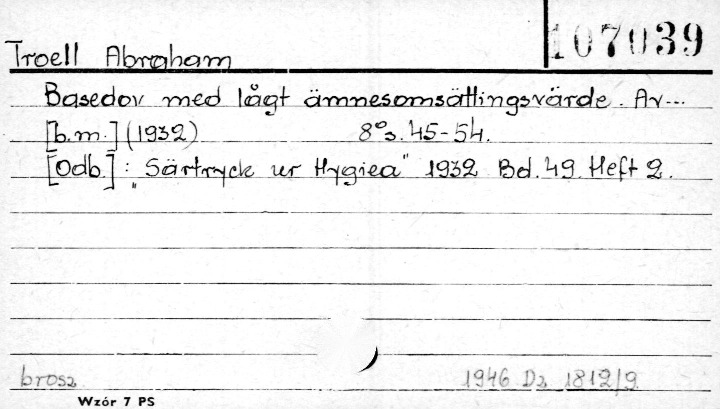 107039
Troell Abraham
Basedov med lågt ämnesomsättingsvärde. Av...
[b.m.] (1932) 8° s. 45-54.
[Odb.]: "Särtryck ur Hygiea" 1932 Bd. 49 Heft 2.
brosz. 1946 Dz 1812/9
Wzór 7 PS